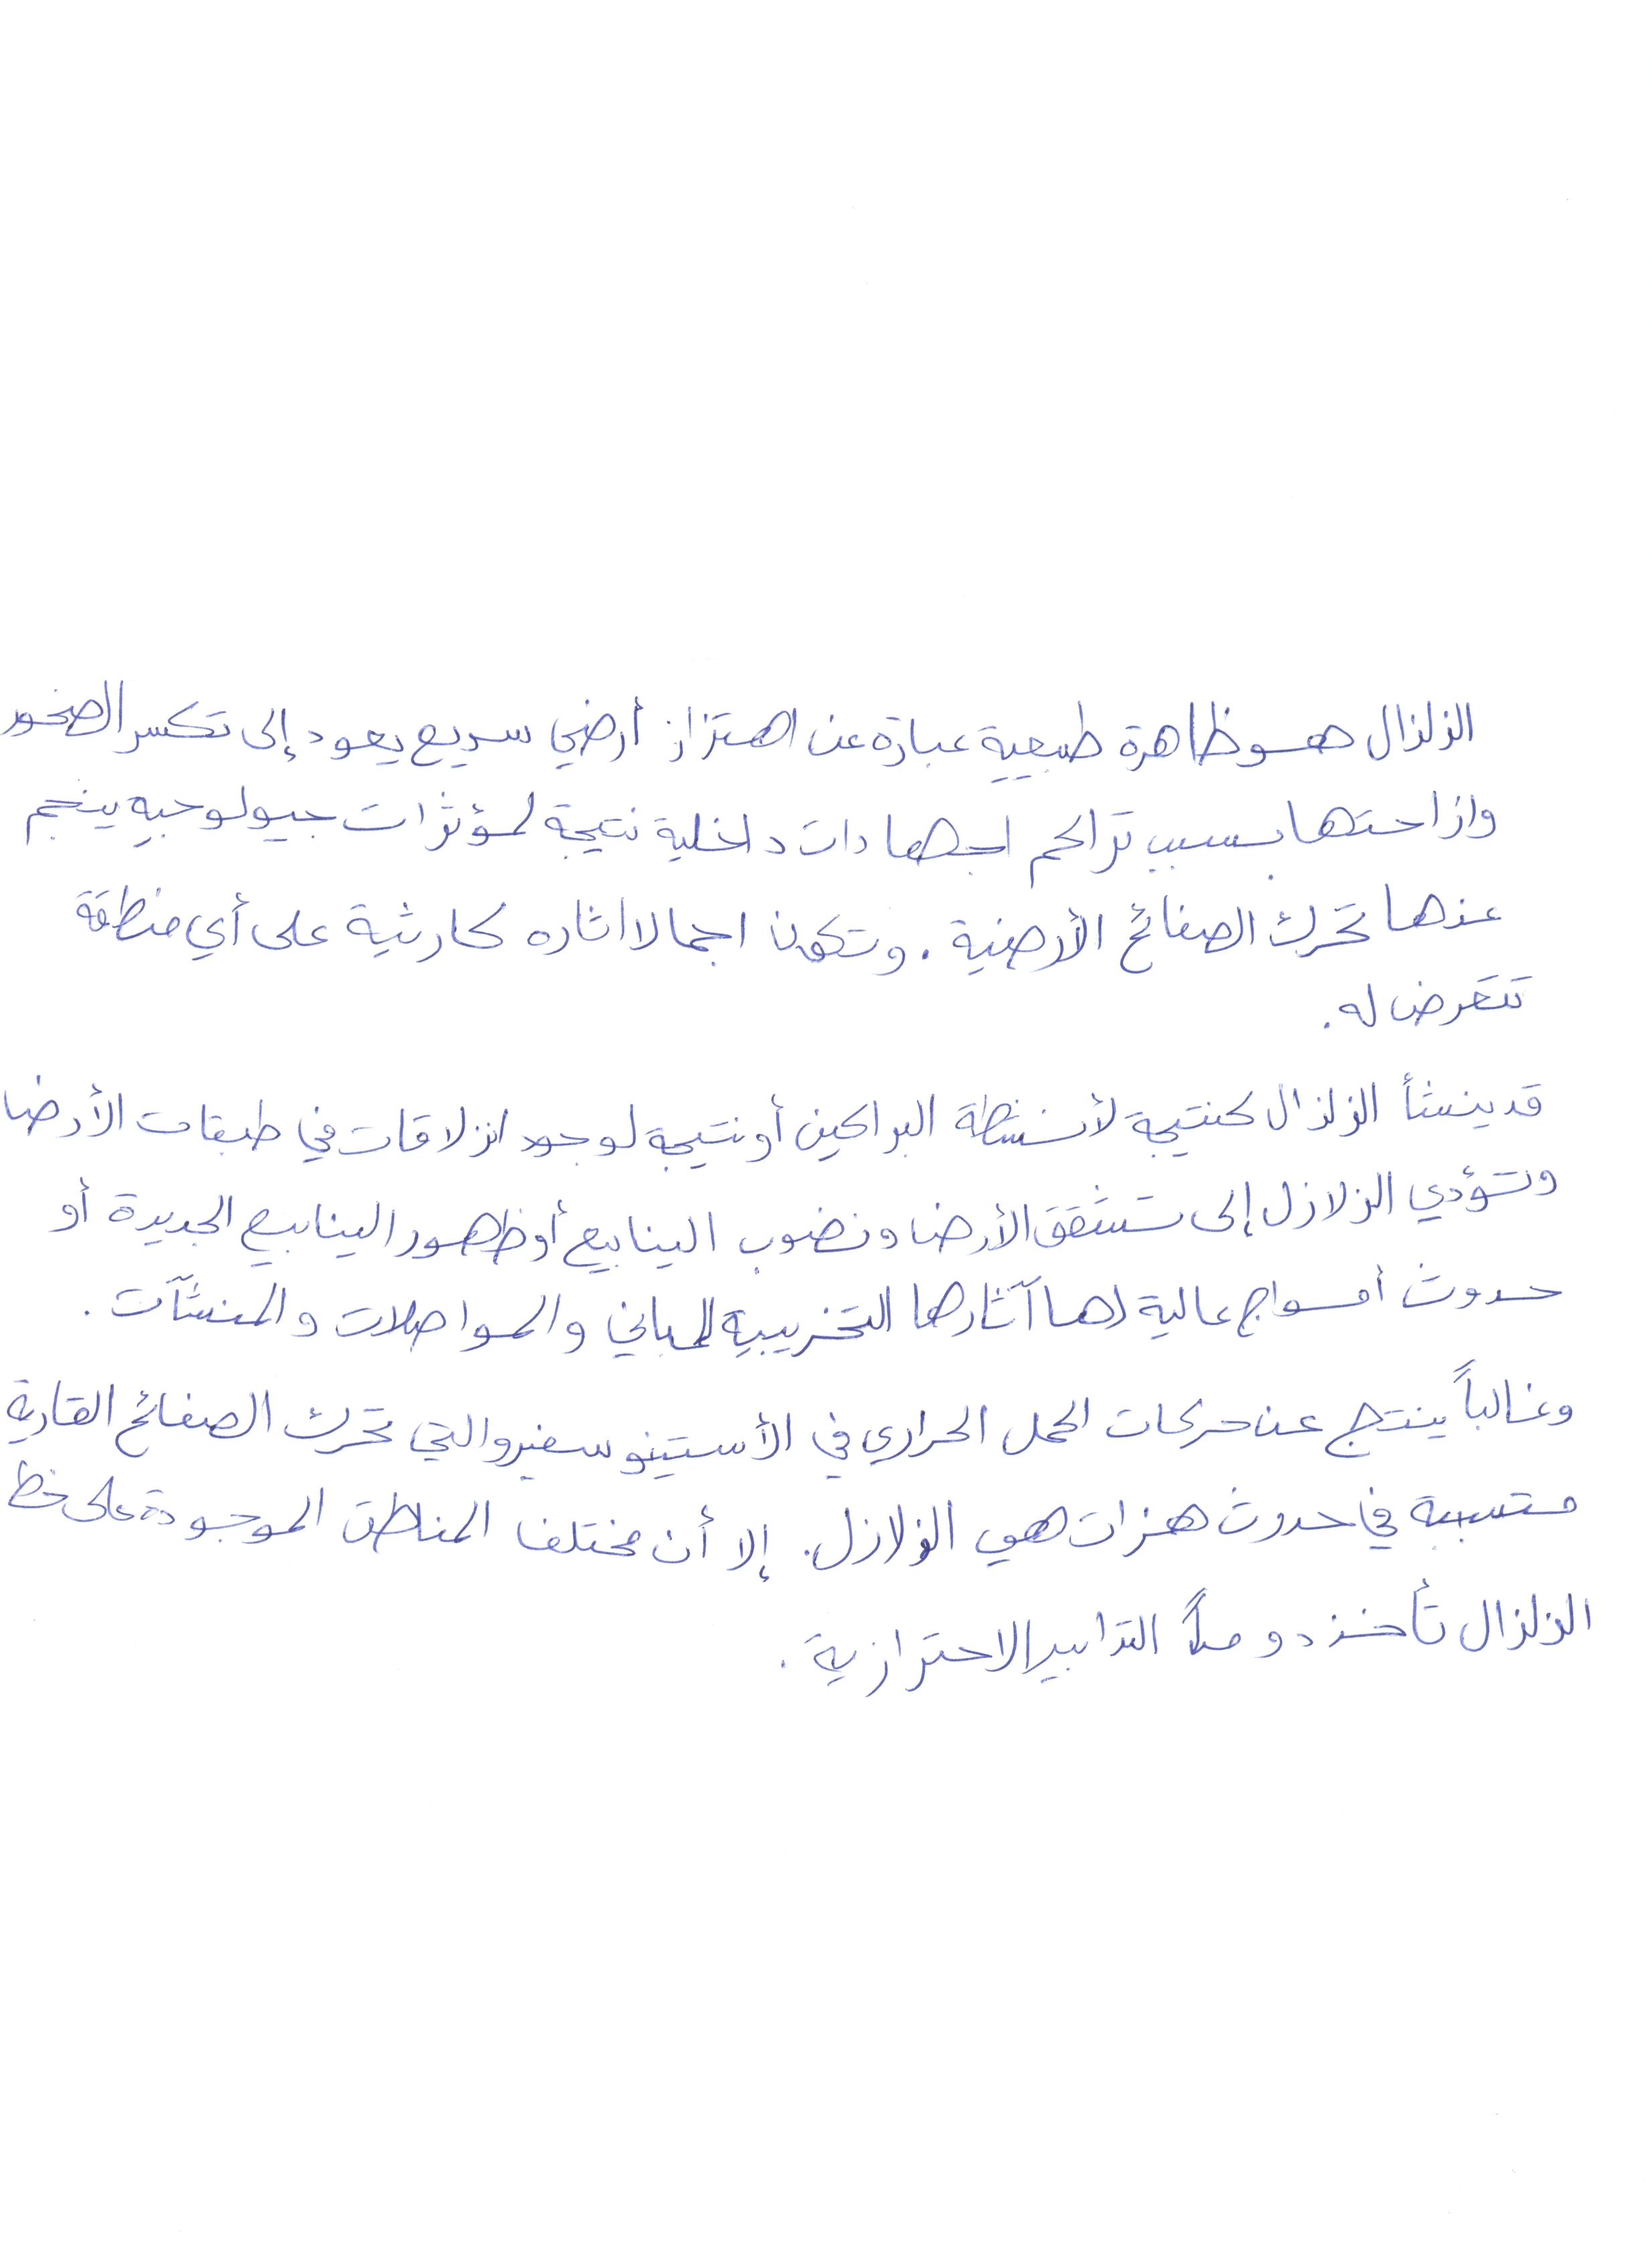 الزلزال هو ظاهرة طبيعية عبارة عن اهتزاز أرضي سريع يعود إلى تكسر الصخور
وازاحتها بسبب تراكم اجهادات داخلية نتيجة لمؤثرات جيولوجيه ينجم
عنها تحرك الصفائح الأرضية . وتكون اجمالا اثاره كارثية على أي منطقة
تتعرض له .
قد ينشأ الزلزال كنتيجة لأنشطة البراكين أو نتيجة لوجود انزلاقات في طبقات الأرض
وتؤدي الزلازل إلى تشقق الأرض ونضوب الينابيع أو ظهور الينابيع الجديدة أو
حدوث أمواج عالية لها آثارها التخريبية للمباني والمواصلات والمنشآت .
وغالباً ينتج عن حركات الحمل الحراري في الأستينوسفير والتي تحرك الصفائح القارية
متسببة في حدوث هزات هي الزلازل . إلا أن مختلف المناطق الموجودة على خط
الزلزال تأخذ دوماً التدابير الاحترازية .